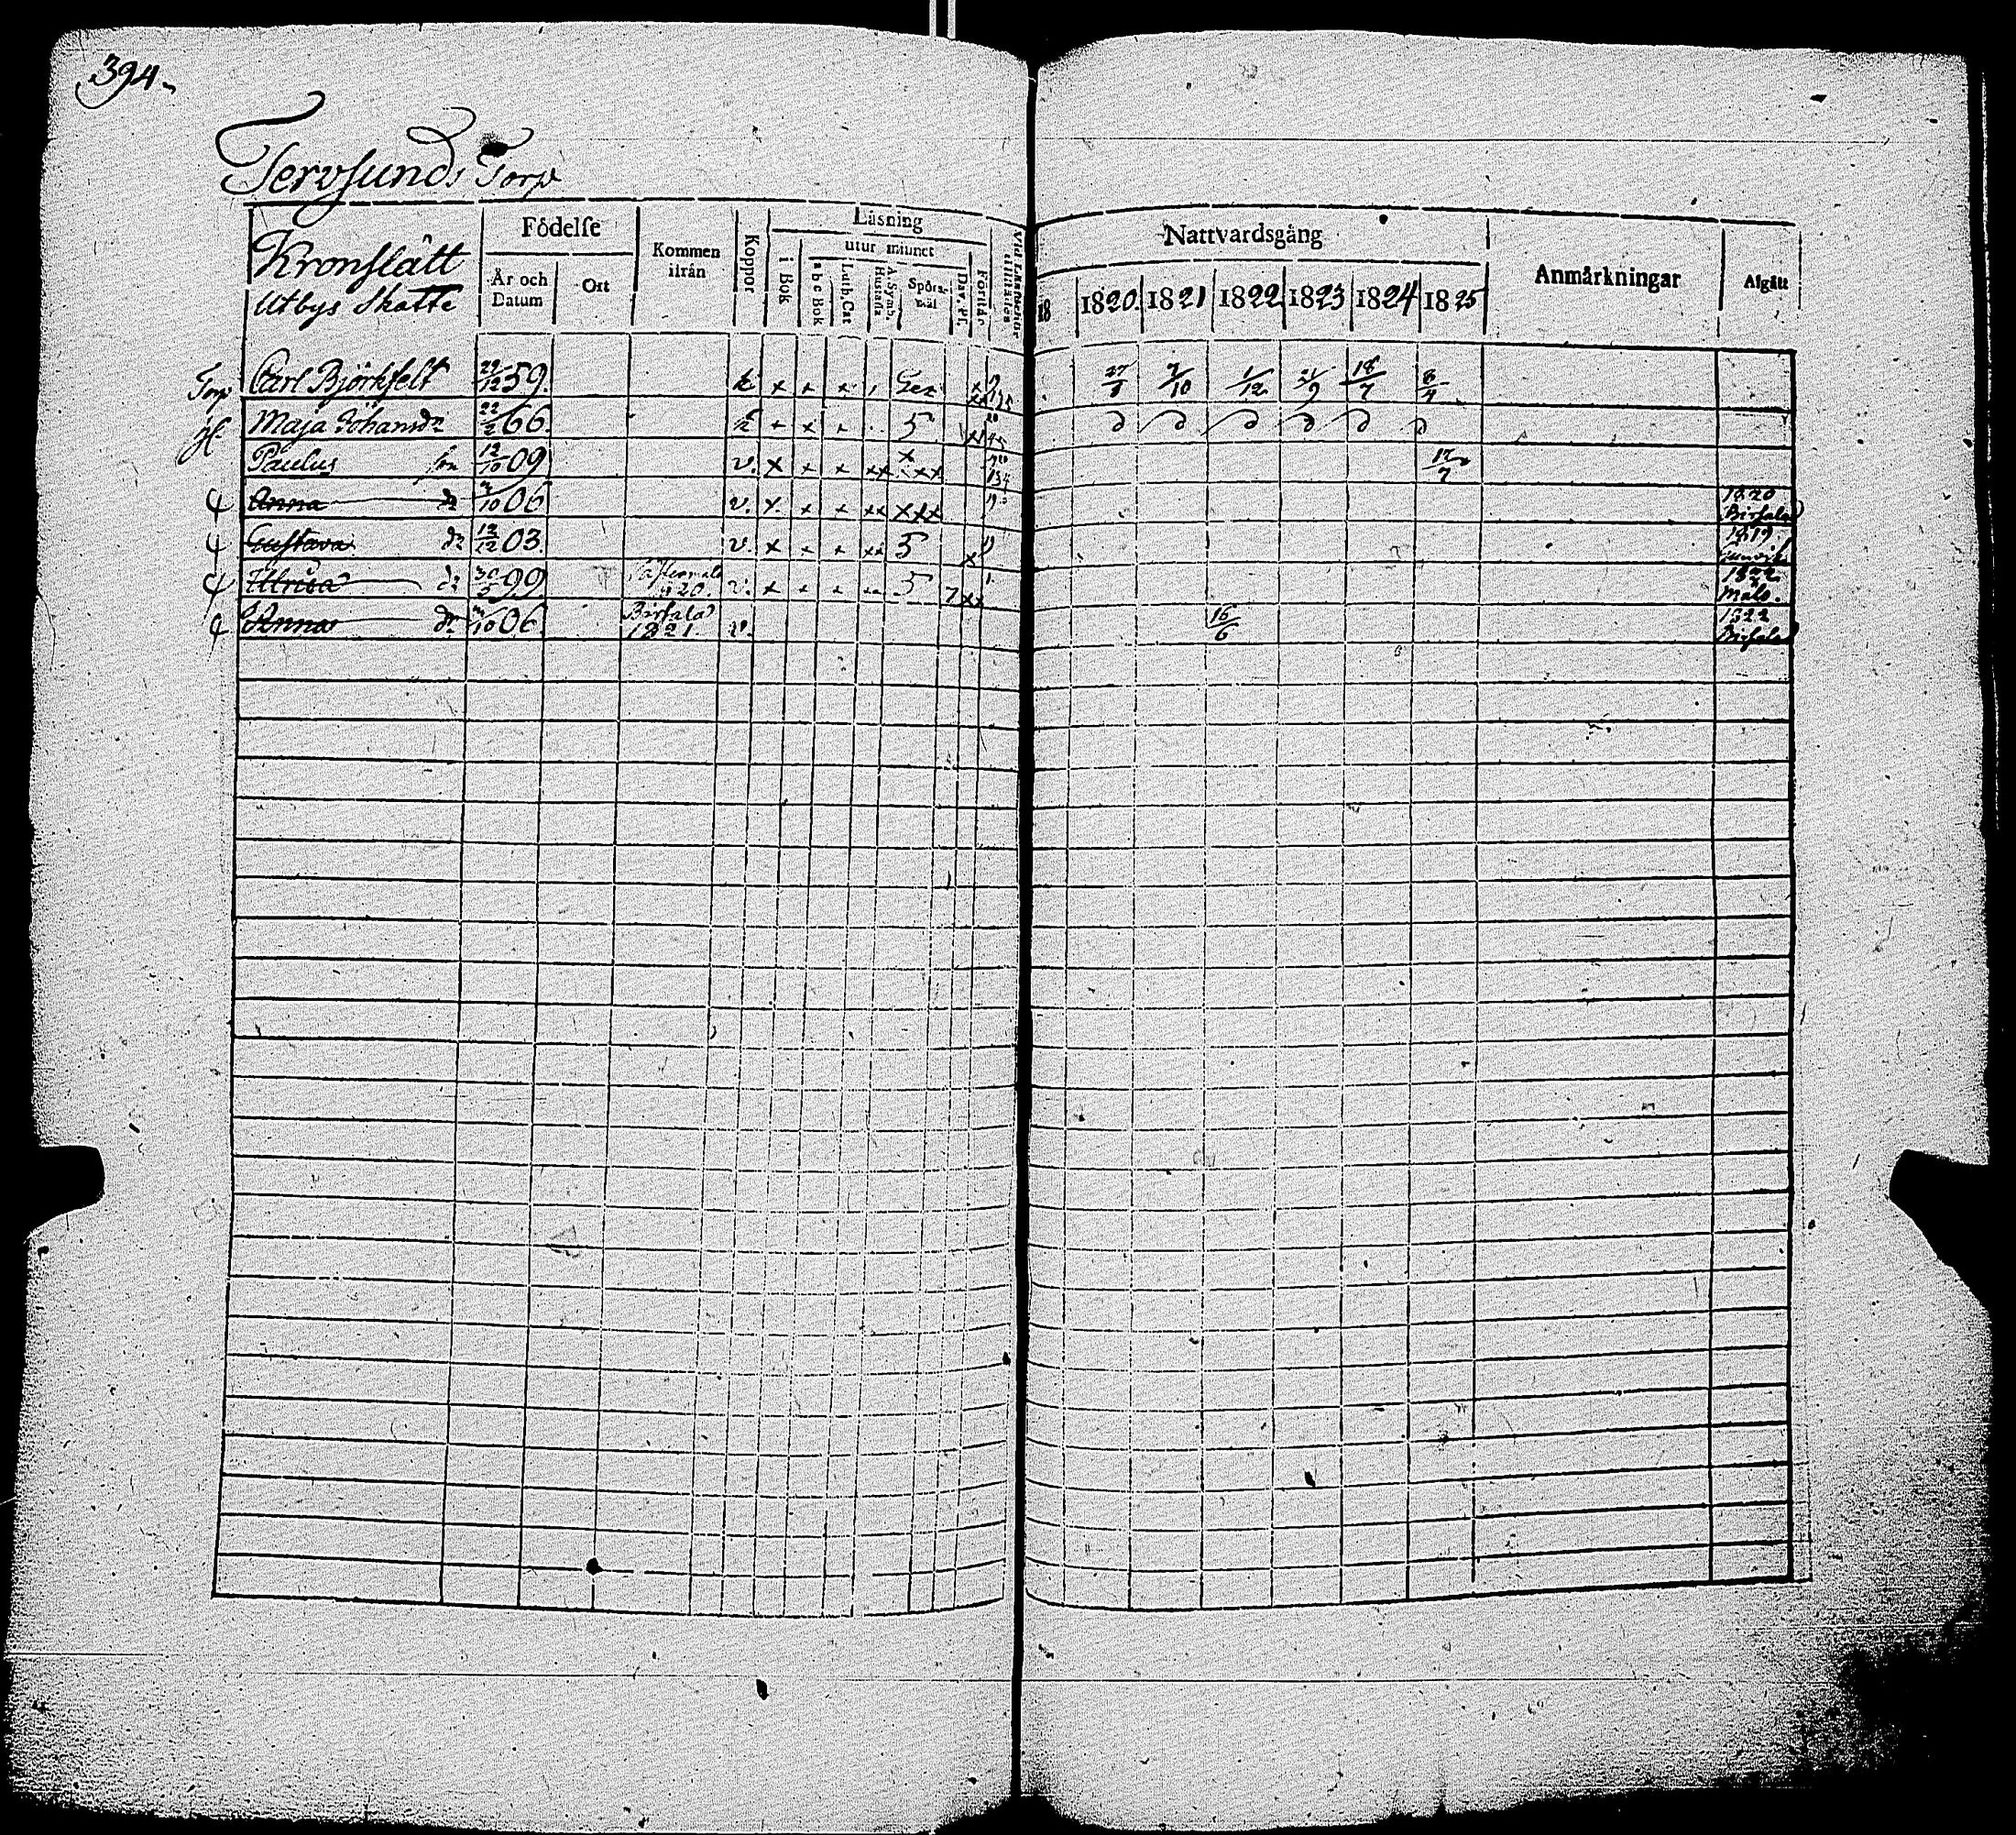 394.
Tervsunds Torp
Kronslätt
Utbys Skatte
Födelse
År och Datum
Ort
Kommen ifrån
Koppor
Läsning
i Bok
utur minnet
a b c Bok
Luth. Cat
A. Symb. Hustafla
Spörsmål
Dav. Ps.
Förstår
Nattvardsgång
18
1820.
1821
1822
1823
1824
1825
Anmärkningar
Afgått
Torp Carl Björkfelt 22/12 59. k x x x Ger 7/10 1/12 18/7 8/4
H. Maja Johansdr 22/2 66. k x x x 5
Paulus son 12/10 09 v. x x x xx xxx 17/7
Anna dr 06 v. x x x xx xxx 1820 Birsala
Gustava dr 12/12 03. v. x x x xx 5 x 1819
Ulrica dr 99 20. v. x x x 5 7 xx 1822 Mâlö.
Anna dr 06 Birsala 1821. v. 16/6 1822 Birsala